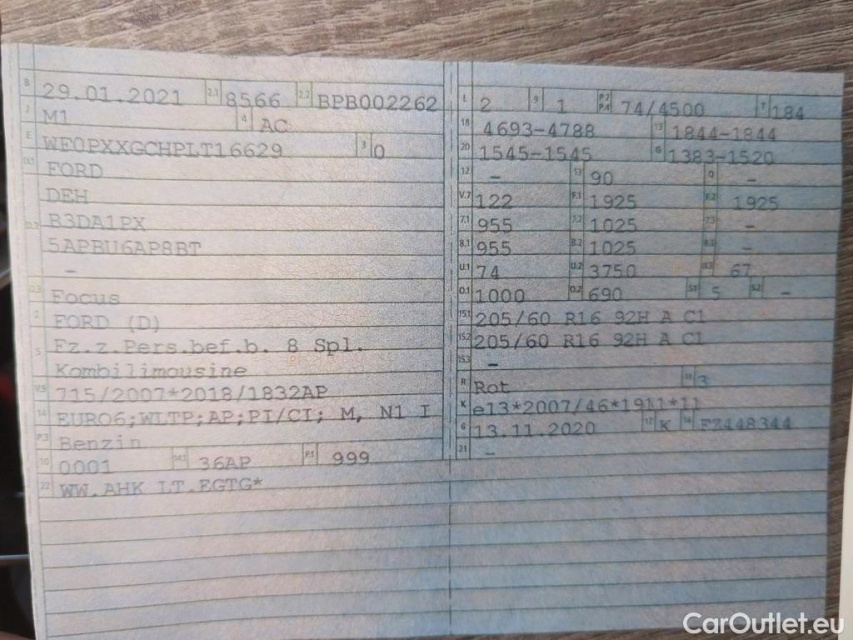 B 29.01.2021 2.1 8566 2.2 BPB002262
J M1 4 AC
E WF0PXXGCHPLT16629 3 0
D.1 FORD
DEH
D.2 B3DA1PX
5APBU6AP8BT
–
D.3 Focus
2 FORD (D)
5 Fz.z.Pers.bef.b. 8 Spl.
Kombilimousine
V.9 715/2007*2018/1832AP
14 EURO6;WLTP;AP;PI/CI; M, N1 I
P.3 Benzin
10 0001 14.1 36AP P.1 999
22 WW.AHK LT.EGTG*
L 2 9 1 P.2 P.4 74/4500 T 184
18 4693-4788 19 1844-1844
20 1545-1545 G 1383-1520
12 – 13 90 Q –
V.7 122 F.1 1925 F.2 1925
7.1 955 7.2 1025 7.3 –
8.1 955 8.2 1025 8.3 –
U.1 74 U.2 3750 U.3 67
O.1 1000 O.2 690 S.1 5 S.2 –
15.1 205/60 R16 92H A C1
15.2 205/60 R16 92H A C1
15.3 –
R Rot 11 3
K e13*2007/46*1911*11
6 13.11.2020 17 K 16 FZ448344
21 –
CarOutlet.eu